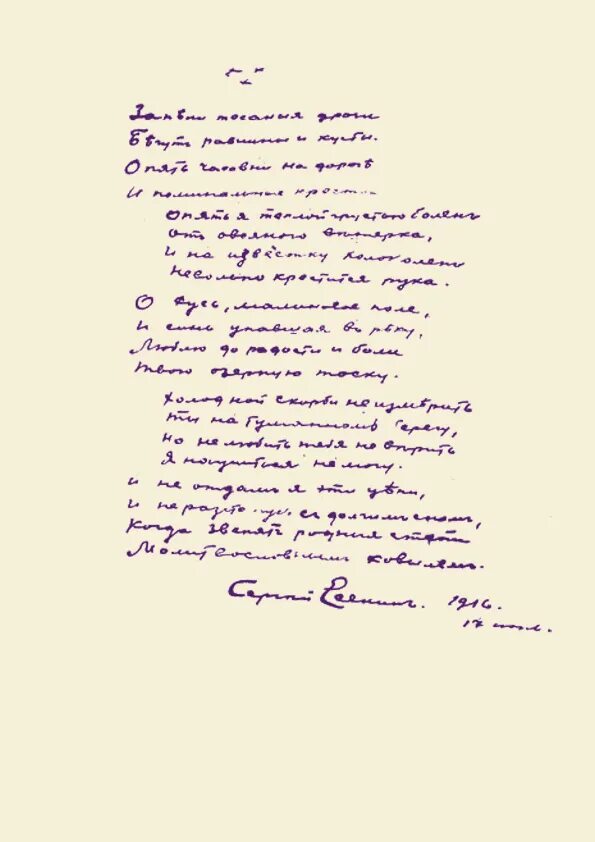 * * *
Запѣли тесаныя дроги
Бѣгутъ равнины и кусты.
Опять часовни на дорогѣ
И поминальные кресты
Опять я теплой грустью боленъ
Отъ овсяного вѣтерка,
И на извѣстку колоколенъ
Невольно крестится рука.
О Русь, малиновое поле,
И синь упавшая въ рѣку,
Люблю до радости и боли
Твою озерную тоску.
Холодной скорби не измѣрить
Ты на туманномъ берегу,
Но не любить тебя не вѣрить
Я научиться не могу.
И не отдамъ я эти цѣпи,
И не разстанусь съ долгимъ сномъ,
Когда звенятъ родныя степи
Молитвословнымъ ковылемъ.
Сергѣй Есенинъ. 1916.
17 июл.